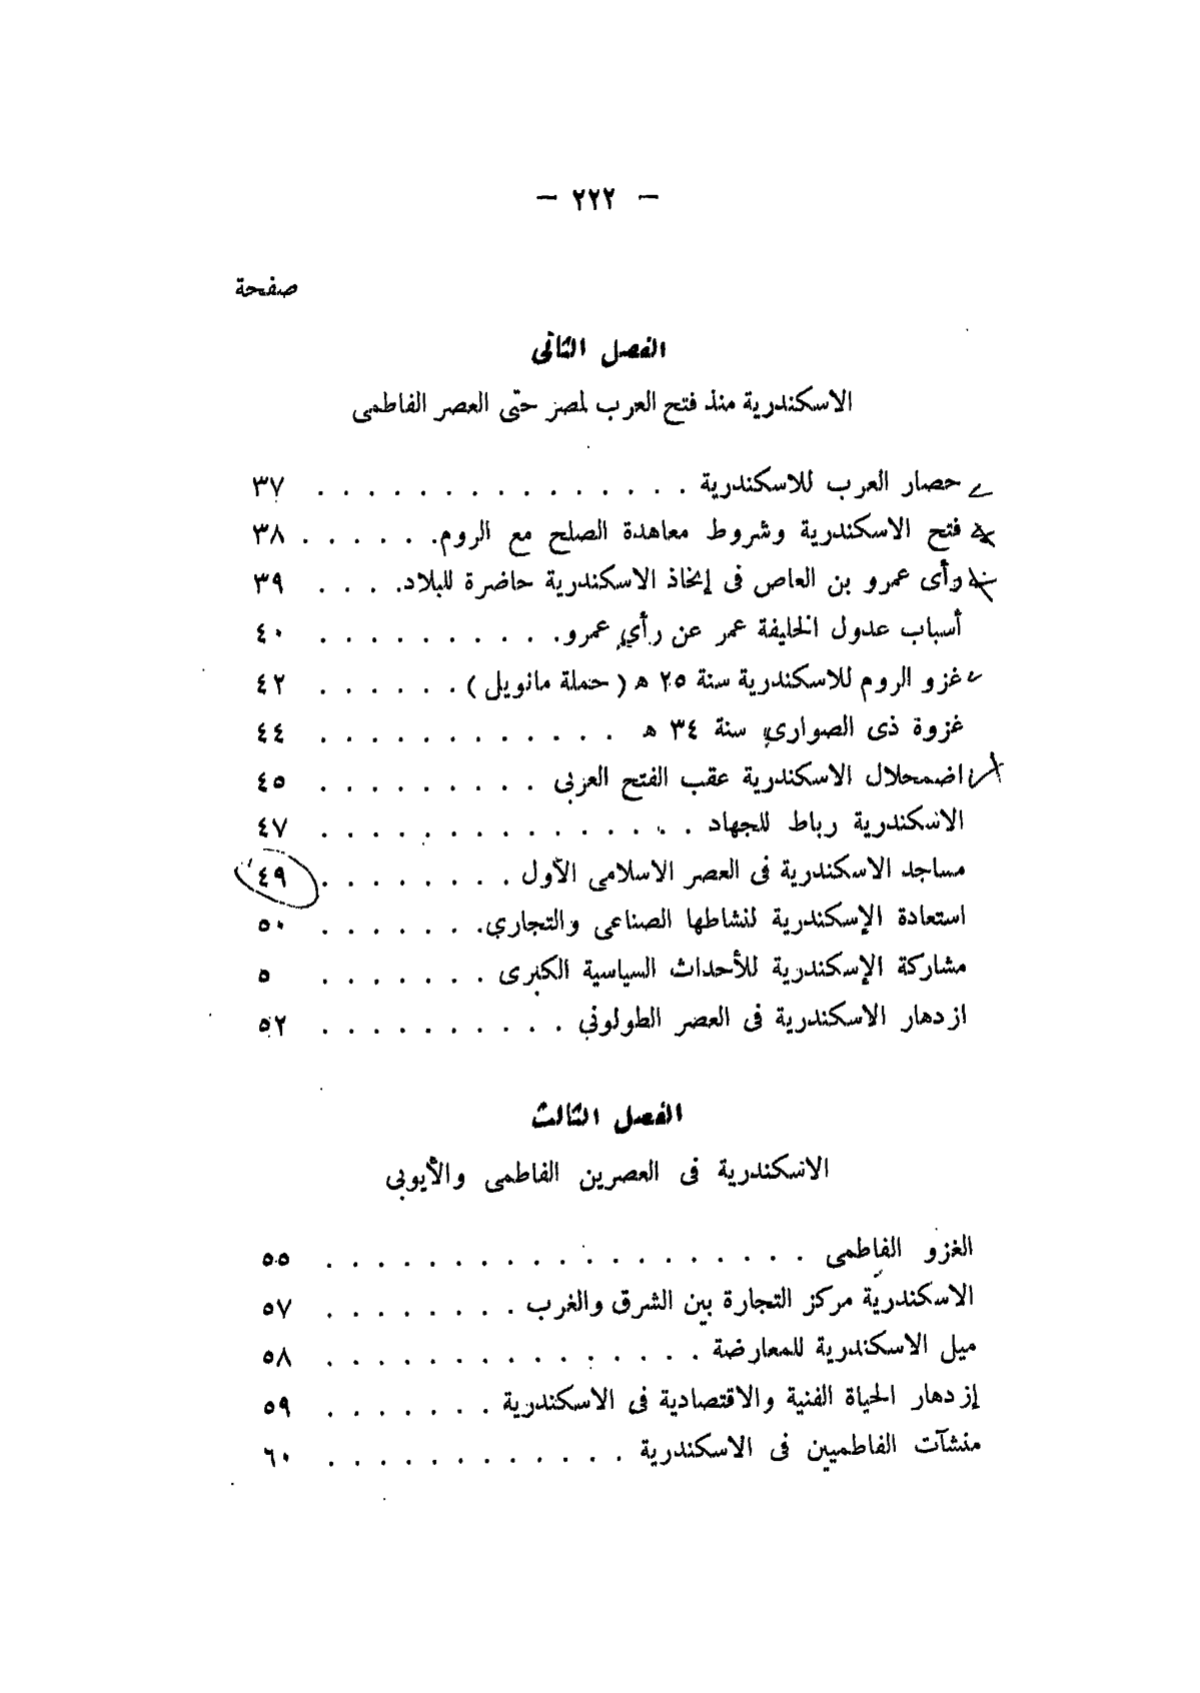 — ٢٢٢ —
صفحة
الفصل الثانى
الاسكندرية منذ فتح العرب لمصر حتى العصر الفاطمى
حصار العرب للاسكندرية . . . . . . . . . . . . . . . ٣٧
فتح الاسكندرية وشروط معاهدة الصلح مع الروم . . . . . . ٣٨
رأى عمرو بن العاص فى إتخاذ الاسكندرية حاضرة للبلاد . . . . ٣٩
أسباب عدول الخليفة عمر عن رأي عمرو . . . . . . . . . . ٤٠
غزو الروم للاسكندرية سنة ٢٥ ه ( حملة مانويل ) . . . . . . ٤٢
غزوة ذى الصواري سنة ٣٤ ه . . . . . . . . . . . . ٤٤
اضمحلال الاسكندرية عقب الفتح العربى . . . . . . . . . ٤٥
الاسكندرية رباط للجهاد . . . . . . . . . . . . . . . ٤٧
مساجد الاسكندرية فى العصر الاسلامى الأول . . . . . . . . ٤٩
استعادة الإسكندرية لنشاطها الصناعى والتجاري . . . . . . . ٥٠
مشاركة الإسكندرية للأحداث السياسية الكبرى . . . . . . . ٥
ازدهار الاسكندرية فى العصر الطولوني . . . . . . . . . . ٥٢
الفصل الثالث
الاسكندرية فى العصرين الفاطمى والأيوبى
الغزو الفاطمى . . . . . . . . . . . . . . . . . . . ٥٥
الاسكندرية مركز التجارة بين الشرق والغرب . . . . . . . . ٥٧
ميل الاسكندرية للمعارضة . . . . . . . . . . . . . . . ٥٨
إزدهار الحياة الفنية والاقتصادية فى الاسكندرية . . . . . . . ٥٩
منشآت الفاطميين فى الاسكندرية . . . . . . . . . . . . ٦٠